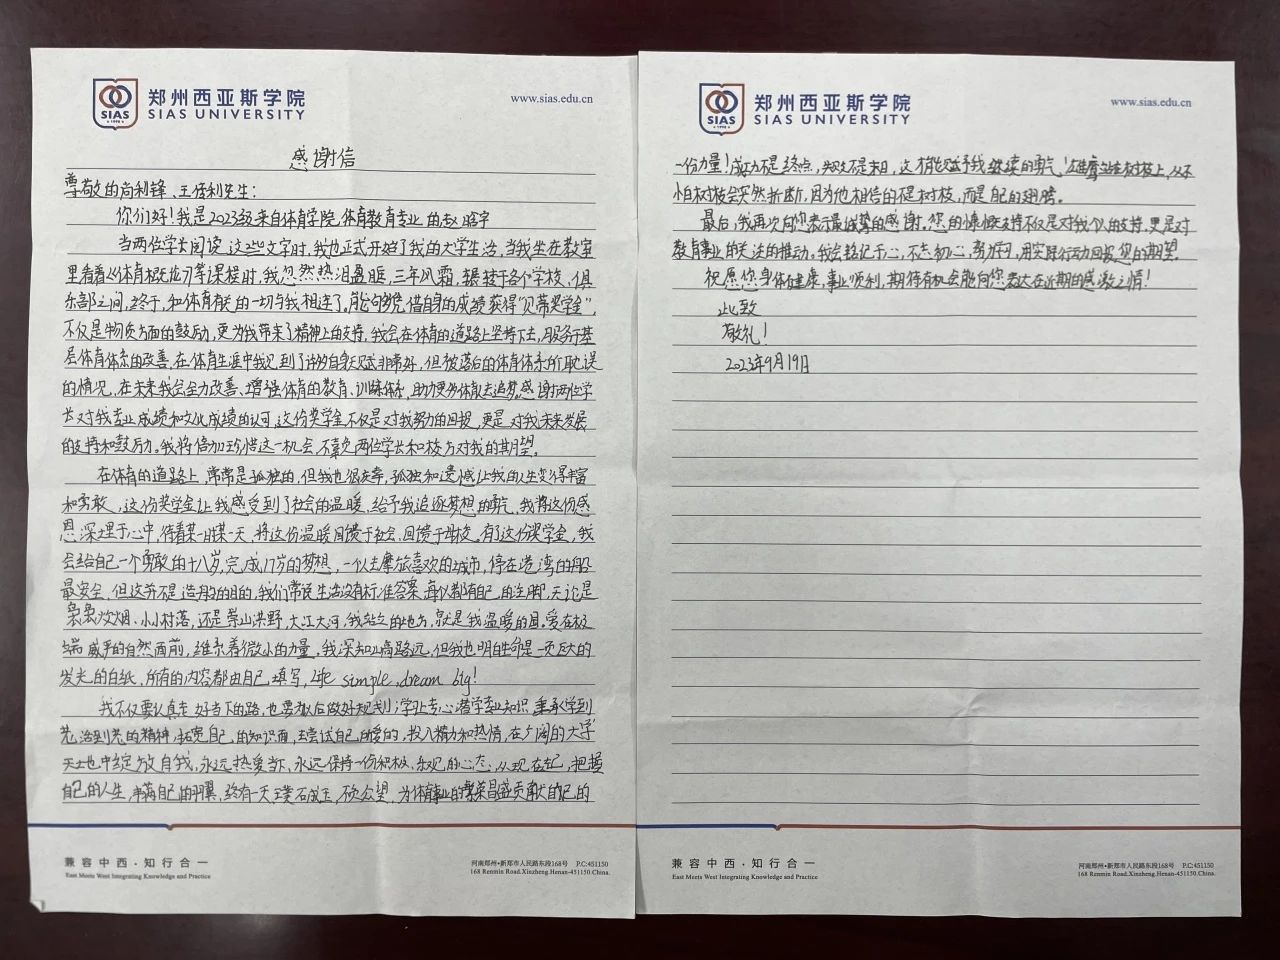 郑州西亚斯学院
SIAS UNIVERSITY
SIAS
1998
www.sias.edu.cn
感谢信
尊敬的尚利锋、王保利先生：
你们好！我是2023级来自体育学院体育教育专业的赵晗宇
当两位学长阅读这些文字时，我也正式开始了我的大学生活，当我坐在教室
里看着从体育概论到等课程时，我忽然热泪盈眶，三年风霜，辗转于各个学校、俱
乐部之间，终于，和体育有关的一切与我相连了。能够凭借自身的成绩获得“贝蒂奖学金”，
不仅是物质方面的鼓励，更为我带来了精神上的支持，我会在体育的道路上坚持下去，服务于基
层体育体系的改善，在体育生涯中我见到了许多自身天赋非常好，但被落后的体育体系所耽误
的情况，在未来我会全力改善、增强体育的教育、训练体系，助力更多体育人去追梦。感谢两位学
长对我专业成绩和文化成绩的认可，这份奖学金不仅是对我努力的回报，更是对我未来发展
的支持和鼓励。我将倍加珍惜这一机会，不辜负两位学长和校方对我的期望。
在体育的道路上，常常是孤独的，但我也很庆幸，孤独和遗憾让我的人生变得丰富
和勇敢，这份奖学金让我感受到了社会的温暖，给予我追逐梦想的勇气，我将这份感
恩深埋于心中，待着某一日某一天，将这份温暖回馈于社会、回馈于母校。有了这份奖学金，我
会给自己一个勇敢的十八岁，完成17岁的梦想，一个人去摩旅喜欢的城市，停在港湾的船
最安全，但这并不是造船的目的，我们常说生活没有标准答案，每个人都有自己的注脚，无论是
袅袅炊烟、小小村落，还是崇山洪野，大江大河，我站立的地方，就是我温暖的国。爱在极
端威严的自然面前，维系着微小的力量，我深知山高路远，但我也明白生命是一页巨大的
发光的白纸，所有的内容都由自己填写，Life simple, dream big!
我不仅要认真走好当下的路，也要为以后做好规划；学习上专心潜学专业知识，秉承学到
老，活到老的精神，拓宽自己的知识面，去尝试自己所爱的，投入精力和热情，在广阔的大学
天地中绽放自我，永远热爱当下、永远保持一份积极、乐观的心态；从现在起，把握
自己的人生，丰满自己的羽翼，终有一天璞石成玉，不负众望，为体育事业的繁荣昌盛贡献自己的
兼容中西·知行合一
East Meets West Integrating Knowledge and Practice
河南郑州·新郑市人民路东段168号 P.C:451150
168 Renmin Road.Xinzheng.Henan-451150.China.
郑州西亚斯学院
SIAS UNIVERSITY
SIAS
1998
www.sias.edu.cn
一份力量！成功不是终点，失败不是末日，这才能赋予我继续的勇气！雄鹰站在树枝上，从不
怕树枝会突然折断，因为他相信的不是树枝，而是自己的翅膀。
最后，我再次向您表示最诚挚的感谢。您的慷慨支持不仅是对我个人的支持，更是对
教育事业的关注的推动。我会铭记于心，不忘初心，努力学习，用实际行动回报您的期望。
祝愿您身体健康，事业顺利，期待有机会能向您表达在近期的感激之情！
此致
敬礼！
2023年9月19日
兼容中西·知行合一
East Meets West Integrating Knowledge and Practice
河南郑州·新郑市人民路东段168号 P.C:451150
168 Renmin Road.Xinzheng.Henan-451150.China.